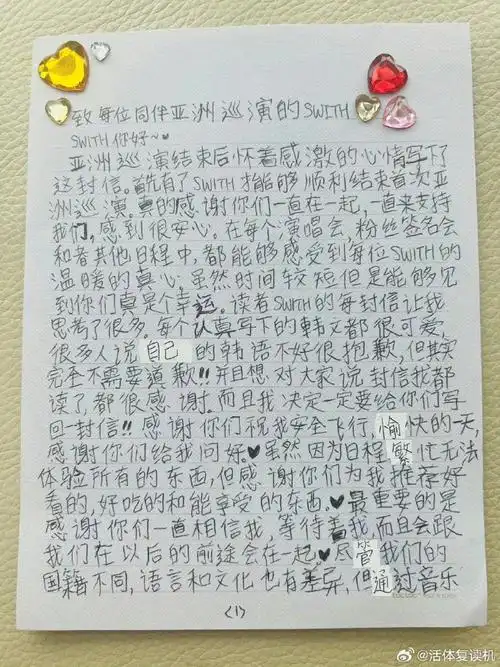 致每位同伴亚洲巡演的SWITH
SWITH 你好~♥
亚洲巡演结束后怀着感激的心情写下了
这封信。首先有了SWITH才能够顺利结束首次亚
洲巡演。真的感谢你们一直在一起,一直来支持
我们,感到很安心。在每个演唱会,粉丝签名会
和音其他日程中,都能够感受到每位SWITH的
温暖的真心。虽然时间较短但是能够见
到你们真是个幸运。读者SWITH的每封信让我
思考了很多。每个认真写下的韩文都很可爱,
很多人说自己的韩语不好很抱歉,但其实
完全不需要道歉!!并且想对大家说封信我都
读了都很感谢。而且我决定一定要给你们写
回一封信!!感谢你们祝我安全飞行,愉快的一天,
感谢你们给我问好♥虽然因为日程繁忙无法
体验所有的东西,但感谢你们为我推荐好
看的,好吃的和能享受的东西。♥最重要的是
感谢你们一直相信我,等待着我而且会跟
我们在以后的前途会在一起♥尽管我们的
国籍不同,语言和文化也有差异,但通过音乐
<1>
@活体复读机